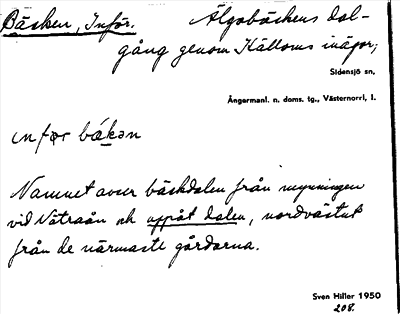 Bäcken, Inför. Älgabäckens dal-
gång genom Källoms inägor;
Sidensjö sn,
Ångermanl. n. doms. tg., Västernorrl. l.
inför bäkən
Namnet avser bäckdalen från mynningen
vid Nätraån och uppåt dalen, nordvästut
från de närmaste gårdarna.
Sven Hiller 1950
208.